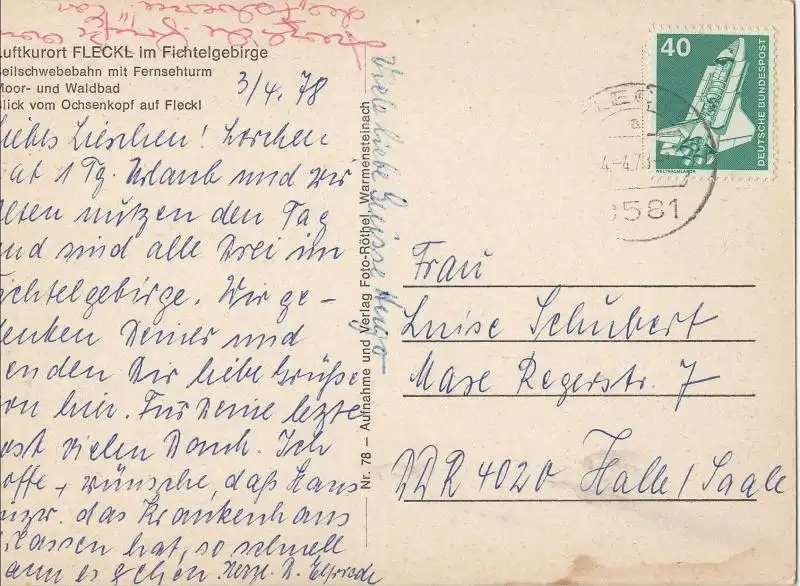 Luftkurort FLECKL im Fichtelgebirge
Seilschwebebahn mit Fernsehturm
Moor- und Waldbad
Blick vom Ochsenkopf auf Fleckl
3/4. 78
liebes Lieschen! Lorchen
at 1 Tg. Urlaub und wir
lten nutzen den Tag
und sind alle Drei im
Fichtelgebirge. Wir ge-
denken Deiner und
enden Dir liebe Grüße
on hier. Für Deine letzte
ost vielen Dank. Ich
offe + wünsche, daß Hans
inzw. das Krankenhaus
lassen hat, so schnell
ann es gehen. Herzl. D. Elfriede
Viele liebe Grüsse Hugo
Nr. 78 – Aufnahme und Verlag Foto-Röthel, Warmensteinach
40
DEUTSCHE BUNDESPOST
WELTRAUMLABOR
4.-4.78
8581
Frau
Luise Schubert
Max Regerstr. 7
DDR 4020 Halle/Saale